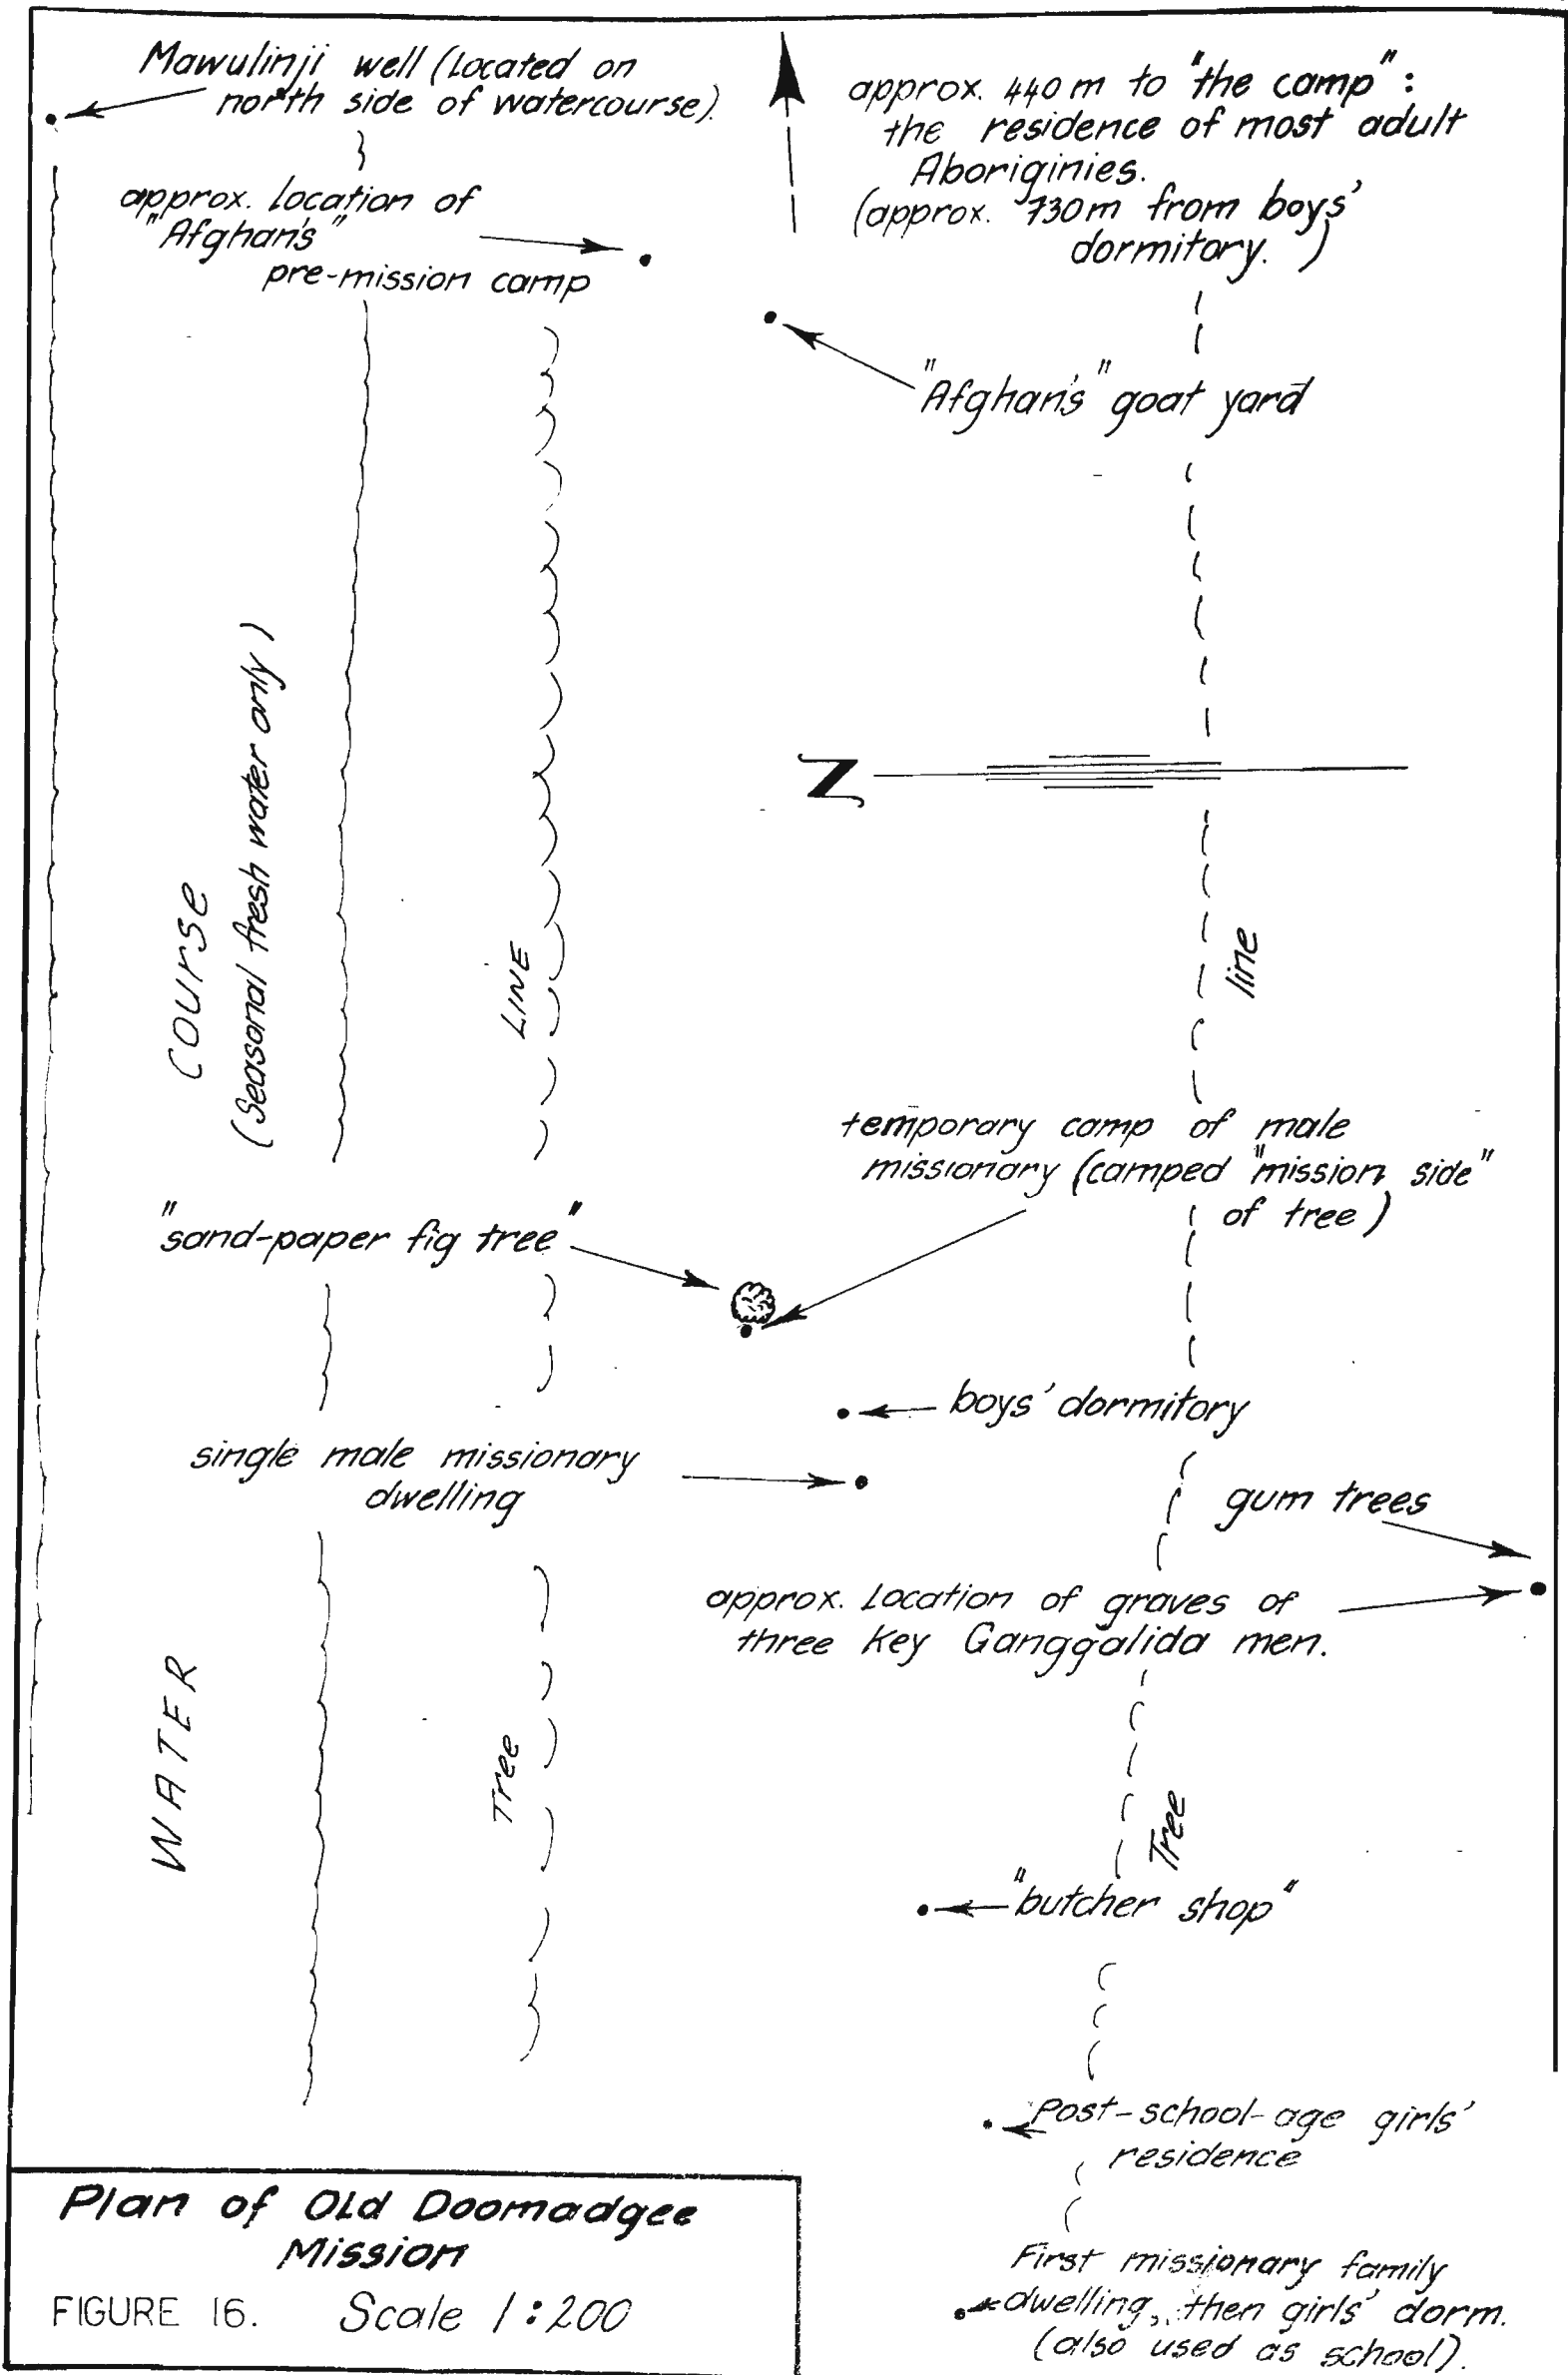 Mawulinji well (Located on
north side of watercourse).
approx. 440 m to "the camp":
the residence of most adult
Aboriginies.
(approx. 730m from boys'
dormitory. )
approx. location of
"Afghan's"
pre-mission camp
"Afghan's" goat yard
N
COURSE
(Seasonal fresh water only)
LINE
line
temporary camp of male
missionary (camped "mission side"
of tree)
"sand-paper fig tree"
boys' dormitory
single male missionary
dwelling
gum trees
approx. Location of graves of
three key Ganggalida men.
WATER
Tree
Tree
"butcher shop"
Post-school-age girls'
residence
First missionary family
dwelling, then girls' dorm.
(also used as school).
Plan of Old Doomadgee
Mission
FIGURE 16. Scale 1:200